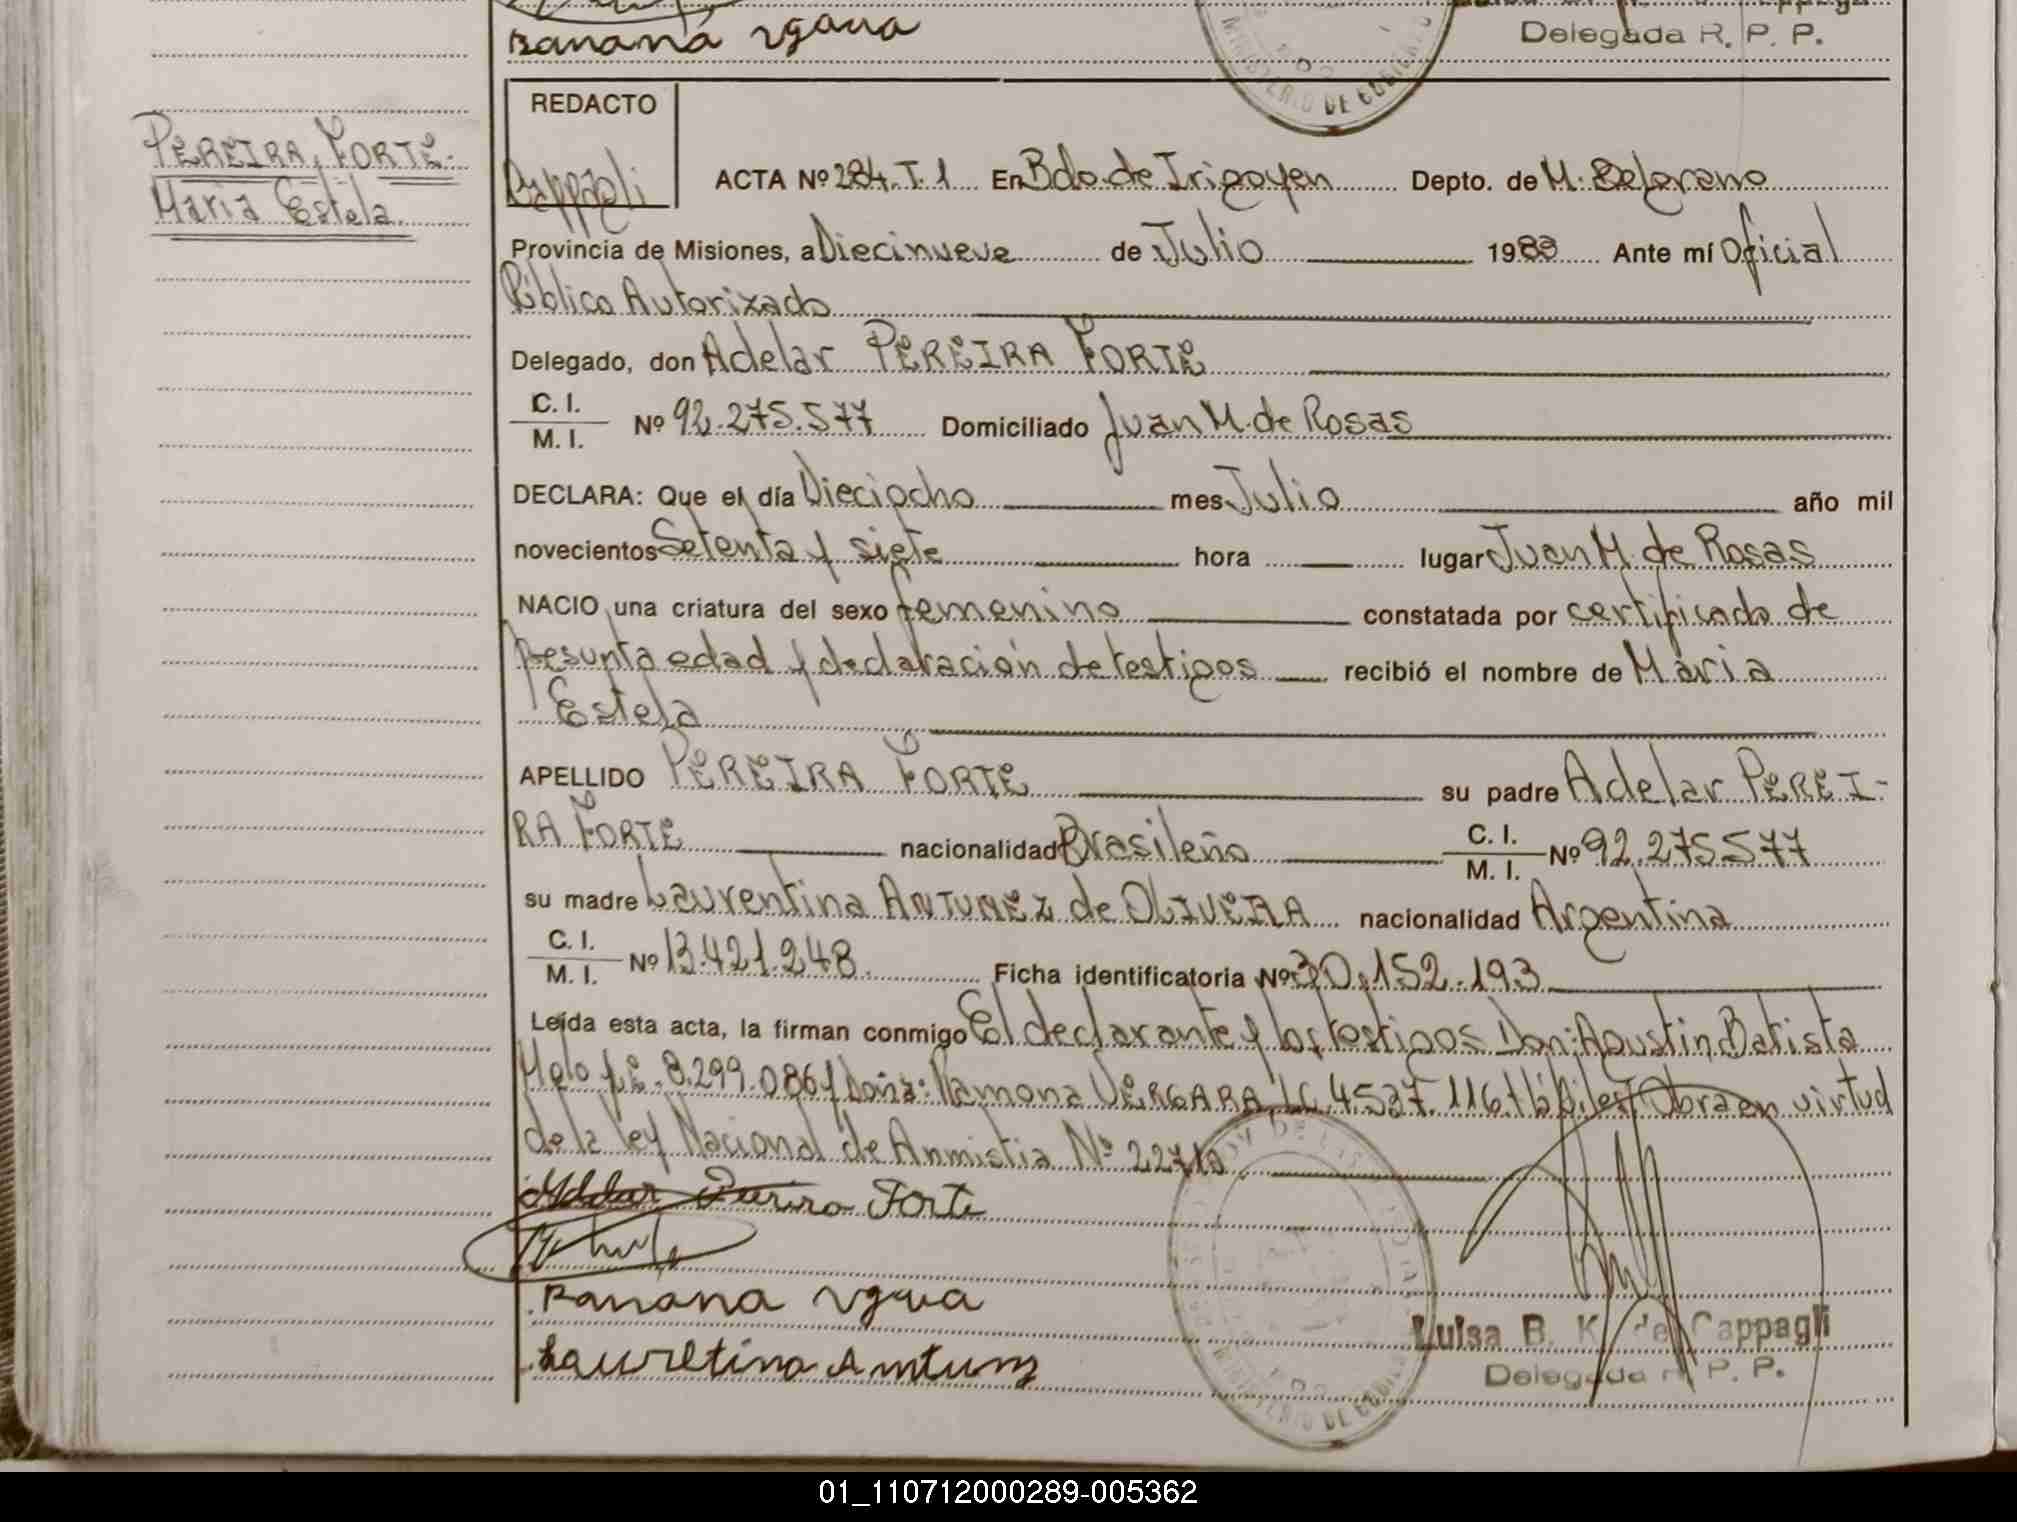 Ramona Vgara
Delegada R. P. P.
MINISTERIO DE GOBIERNO
PEREIRA FORTE
Maria Estela
REDACTO
Cappagli
ACTA Nº 284. T. 1 En Bdo. de Irigoyen Depto. de M. Belgrano
Provincia de Misiones, a Diecinueve de Julio 1983 Ante mí Oficial
Público Autorizado
Delegado, don Adelar PEREIRA FORTE
C. I.
M. I. Nº 92.275.577 Domiciliado Juan M. de Rosas
DECLARA: Que el día Dieciocho mes Julio año mil
novecientos Setenta y siete hora lugar Juan M. de Rosas
NACIO una criatura del sexo femenino constatada por certificado de
presunta edad y declaración de testigos recibió el nombre de Maria
Estela
APELLIDO PEREIRA FORTE su padre Adelar PEREI-
RA FORTE nacionalidad Brasileño C. I. M. I. Nº 92.275.577
su madre Laurentina ANTUNEZ de OLIVEIRA nacionalidad Argentina
C. I.
M. I. Nº 13.421.248. Ficha identificatoria Nº 30.152.193
Leída esta acta, la firman conmigo El declarante y los testigos Don: Agustin Batista
Melo L.E. 8.299.086 y Doña: Ramona VERGARA, LC. 4.537.116. Hábiles. Obra en virtud
de la Ley Nacional de Anmistia Nº 22710
Adelar Pereira Forte
Ramona Vgara
Lauretina Amtunz
Luisa B. K. de Cappagli
Delegada R. P. P.
MINISTERIO DE GOBIERNO
01_110712000289-005362